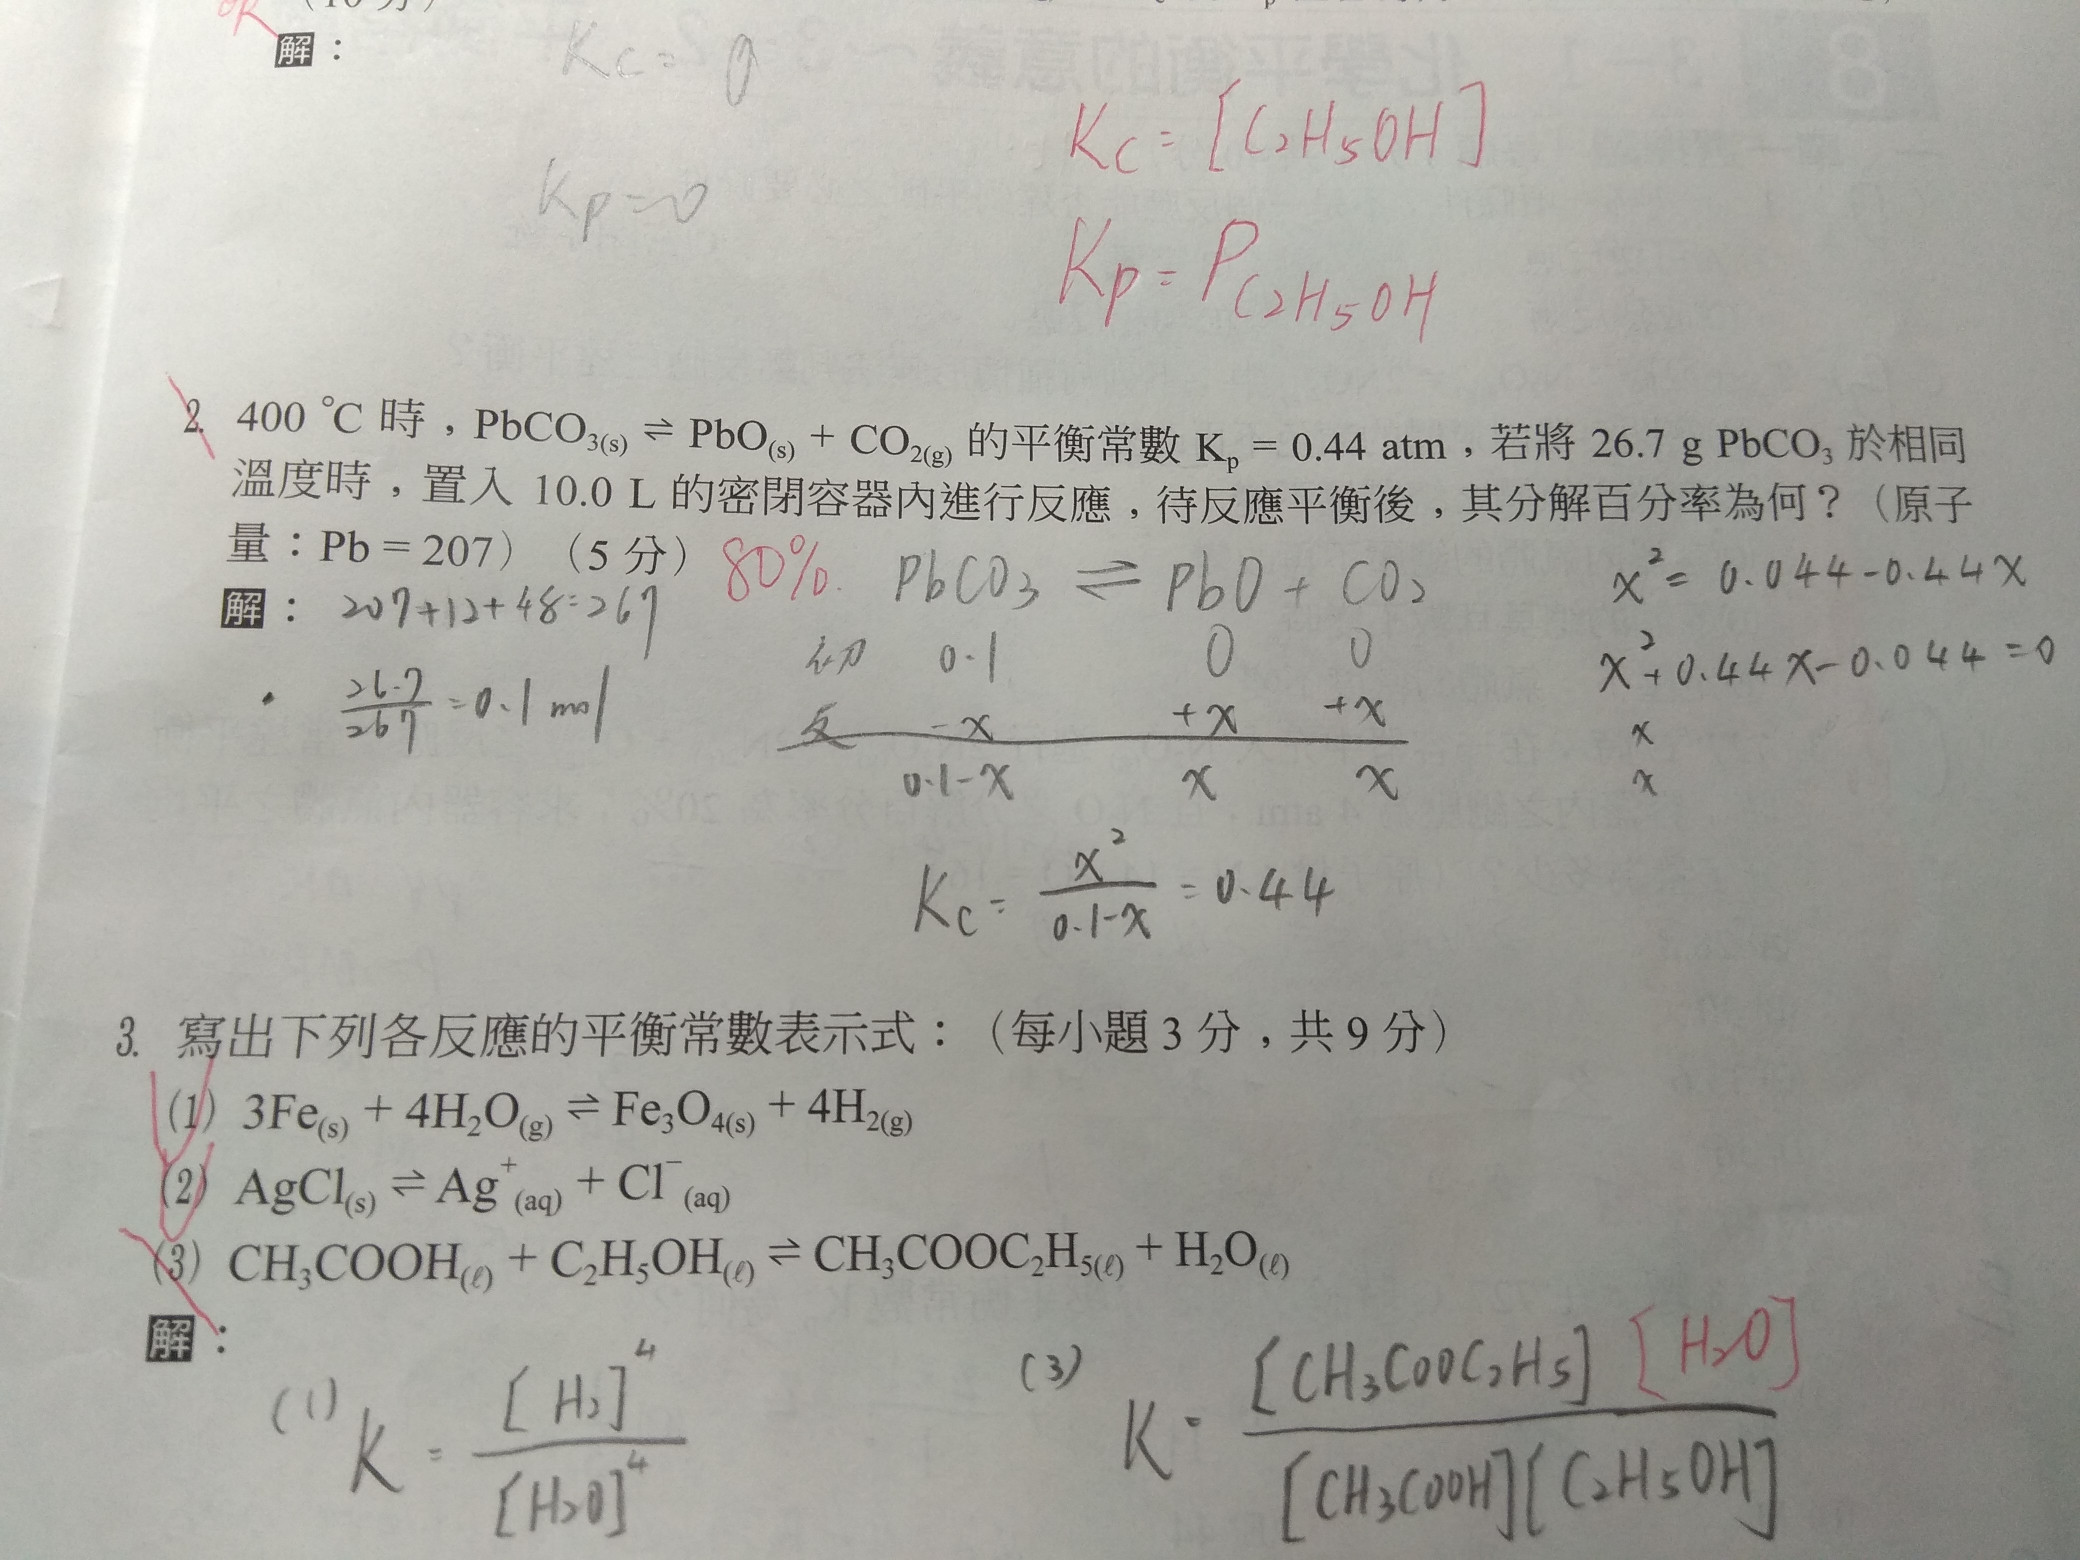 解：
Kc = 0
Kp = 0
Kc = [C₂H₅OH]
Kp = P C₂H₅OH
2. 400 ℃ 時，PbCO₃(s) ⇌ PbO(s) + CO₂(g) 的平衡常數 Kp = 0.44 atm，若將 26.7 g PbCO₃ 於相同
溫度時，置入 10.0 L 的密閉容器內進行反應，待反應平衡後，其分解百分率為何？（原子
量：Pb = 207）（5 分） 80%.
解： 207+12+48=267
26.7/267 = 0.1 mol
PbCO₃ ⇌ PbO + CO₂
初 0.1 0 0
反 -x +x +x
0.1-x x x
Kc = x²/0.1-x = 0.44
x² = 0.044-0.44x
x²+0.44x-0.044=0
x
x
3. 寫出下列各反應的平衡常數表示式：（每小題 3 分，共 9 分）
(1) 3Fe(s) + 4H₂O(g) ⇌ Fe₃O₄(s) + 4H₂(g)
(2) AgCl(s) ⇌ Ag⁺(aq) + Cl⁻(aq)
(3) CH₃COOH(ℓ) + C₂H₅OH(ℓ) ⇌ CH₃COOC₂H₅(ℓ) + H₂O(ℓ)
解：
(1) K = [H₂]⁴/[H₂O]⁴
(3) K = [CH₃COOC₂H₅] [H₂O]/[CH₃COOH][C₂H₅OH]